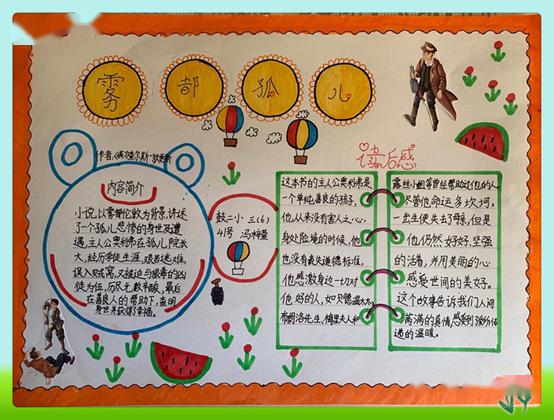 雾都孤儿
作者:(英)查尔斯·狄更斯
内容简介
小说以雾都伦敦为背景,讲述
了一个孤儿悲惨的身世及遭
遇,主人公奥利弗在孤儿院长
大,经历学徒生涯,艰苦逃难,
误入贼窝,又被迫与狠毒的凶
徒为伍,历尽无数辛酸,最后
在善良人的帮助下,查明
身世并获得幸福。
鼓二小 三(6)
41号 冯梓萱
读后感
这本书的主人公奥利弗是
一个单纯善良的孩子,
他从来没有害人之心,
身处险境的时候,他
也没有丧失道德标准,
他感激身边一切对
他好的人,如贝德温太太
布朗洛先生,梅里夫人和
露丝小姐等曾经帮助过他的人
尽管他命运多坎坷,
一出生便失去了母亲,但是
他仍然好好好,坚强
的活着,并用美丽的心
感受世间的美好。
这个故事告诉我们人间
满满的真情,感受到了
递的温暖。